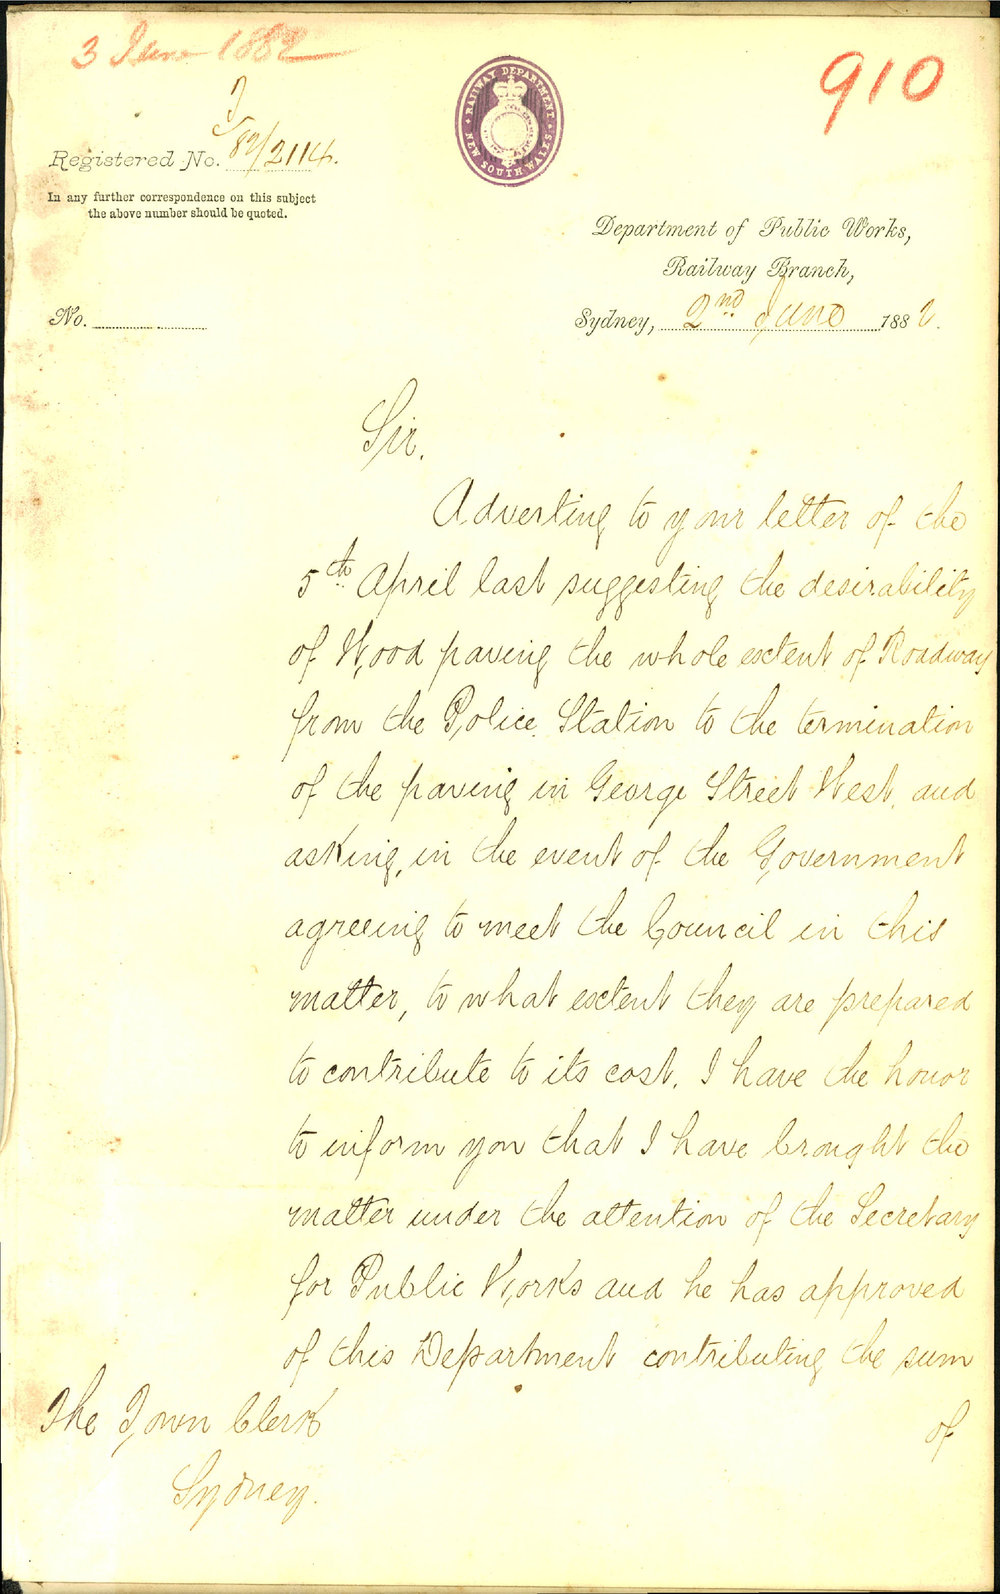 3 June 1882
910
RAILWAY DEPARTMENT
NEW SOUTH WALES
Registered No. 82/2114.
In any further correspondence on this subject
the above number should be quoted.
Department of Public Works,
Railway Branch,
No.
Sydney, 2nd June 1882.
Sir.
Adverting to your letter of the
5th April last suggesting the desirability
of Wood paving the whole extent of Roadway
from the Police Station to the termination
of the paving in George Street West, and
asking, in the event of the Government
agreeing to meet the Council in this
matter, to what extent they are prepared
to contribute to its cost. I have the honor
to inform you that I have brought the
matter under the attention of the Secretary
for Public Works and he has approved
of this Department contributing the sum
of
The Town Clerk
Sydney.